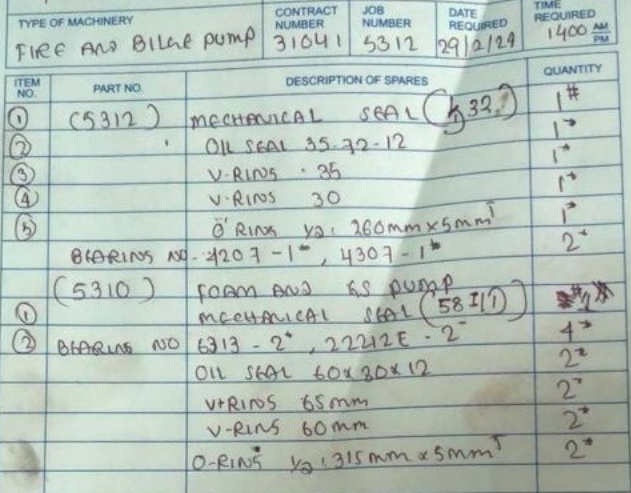 TYPE OF MACHINERY CONTRACT NUMBER JOB NUMBER DATE REQUIRED TIME REQUIRED
FIRE AND BILGE PUMP 31041 5312 29/2/24 1400 AM PM
ITEM NO. PART NO. DESCRIPTION OF SPARES QUANTITY
① (5312) MECHANICAL SEAL ( 532 ) 1#
② OIL SEAL 35-72-12 1#
③ V-RING 35 1#
④ V-RING 30 1#
⑤ 'O' RING 260mm x 5mm T 1#
BEARING NO - 4207 - 1#, 4307 - 1# 2#
(5310) FOAM AND GS PUMP
① MECHANICAL SEAL (58 )
② BEARING NO 6313 - 2#, 22212E - 2# 4#
OIL SEAL 60x80x12 2#
V-RING 65mm 2#
V-RING 60mm 2#
O-RING 315mm x 5mm T 2#